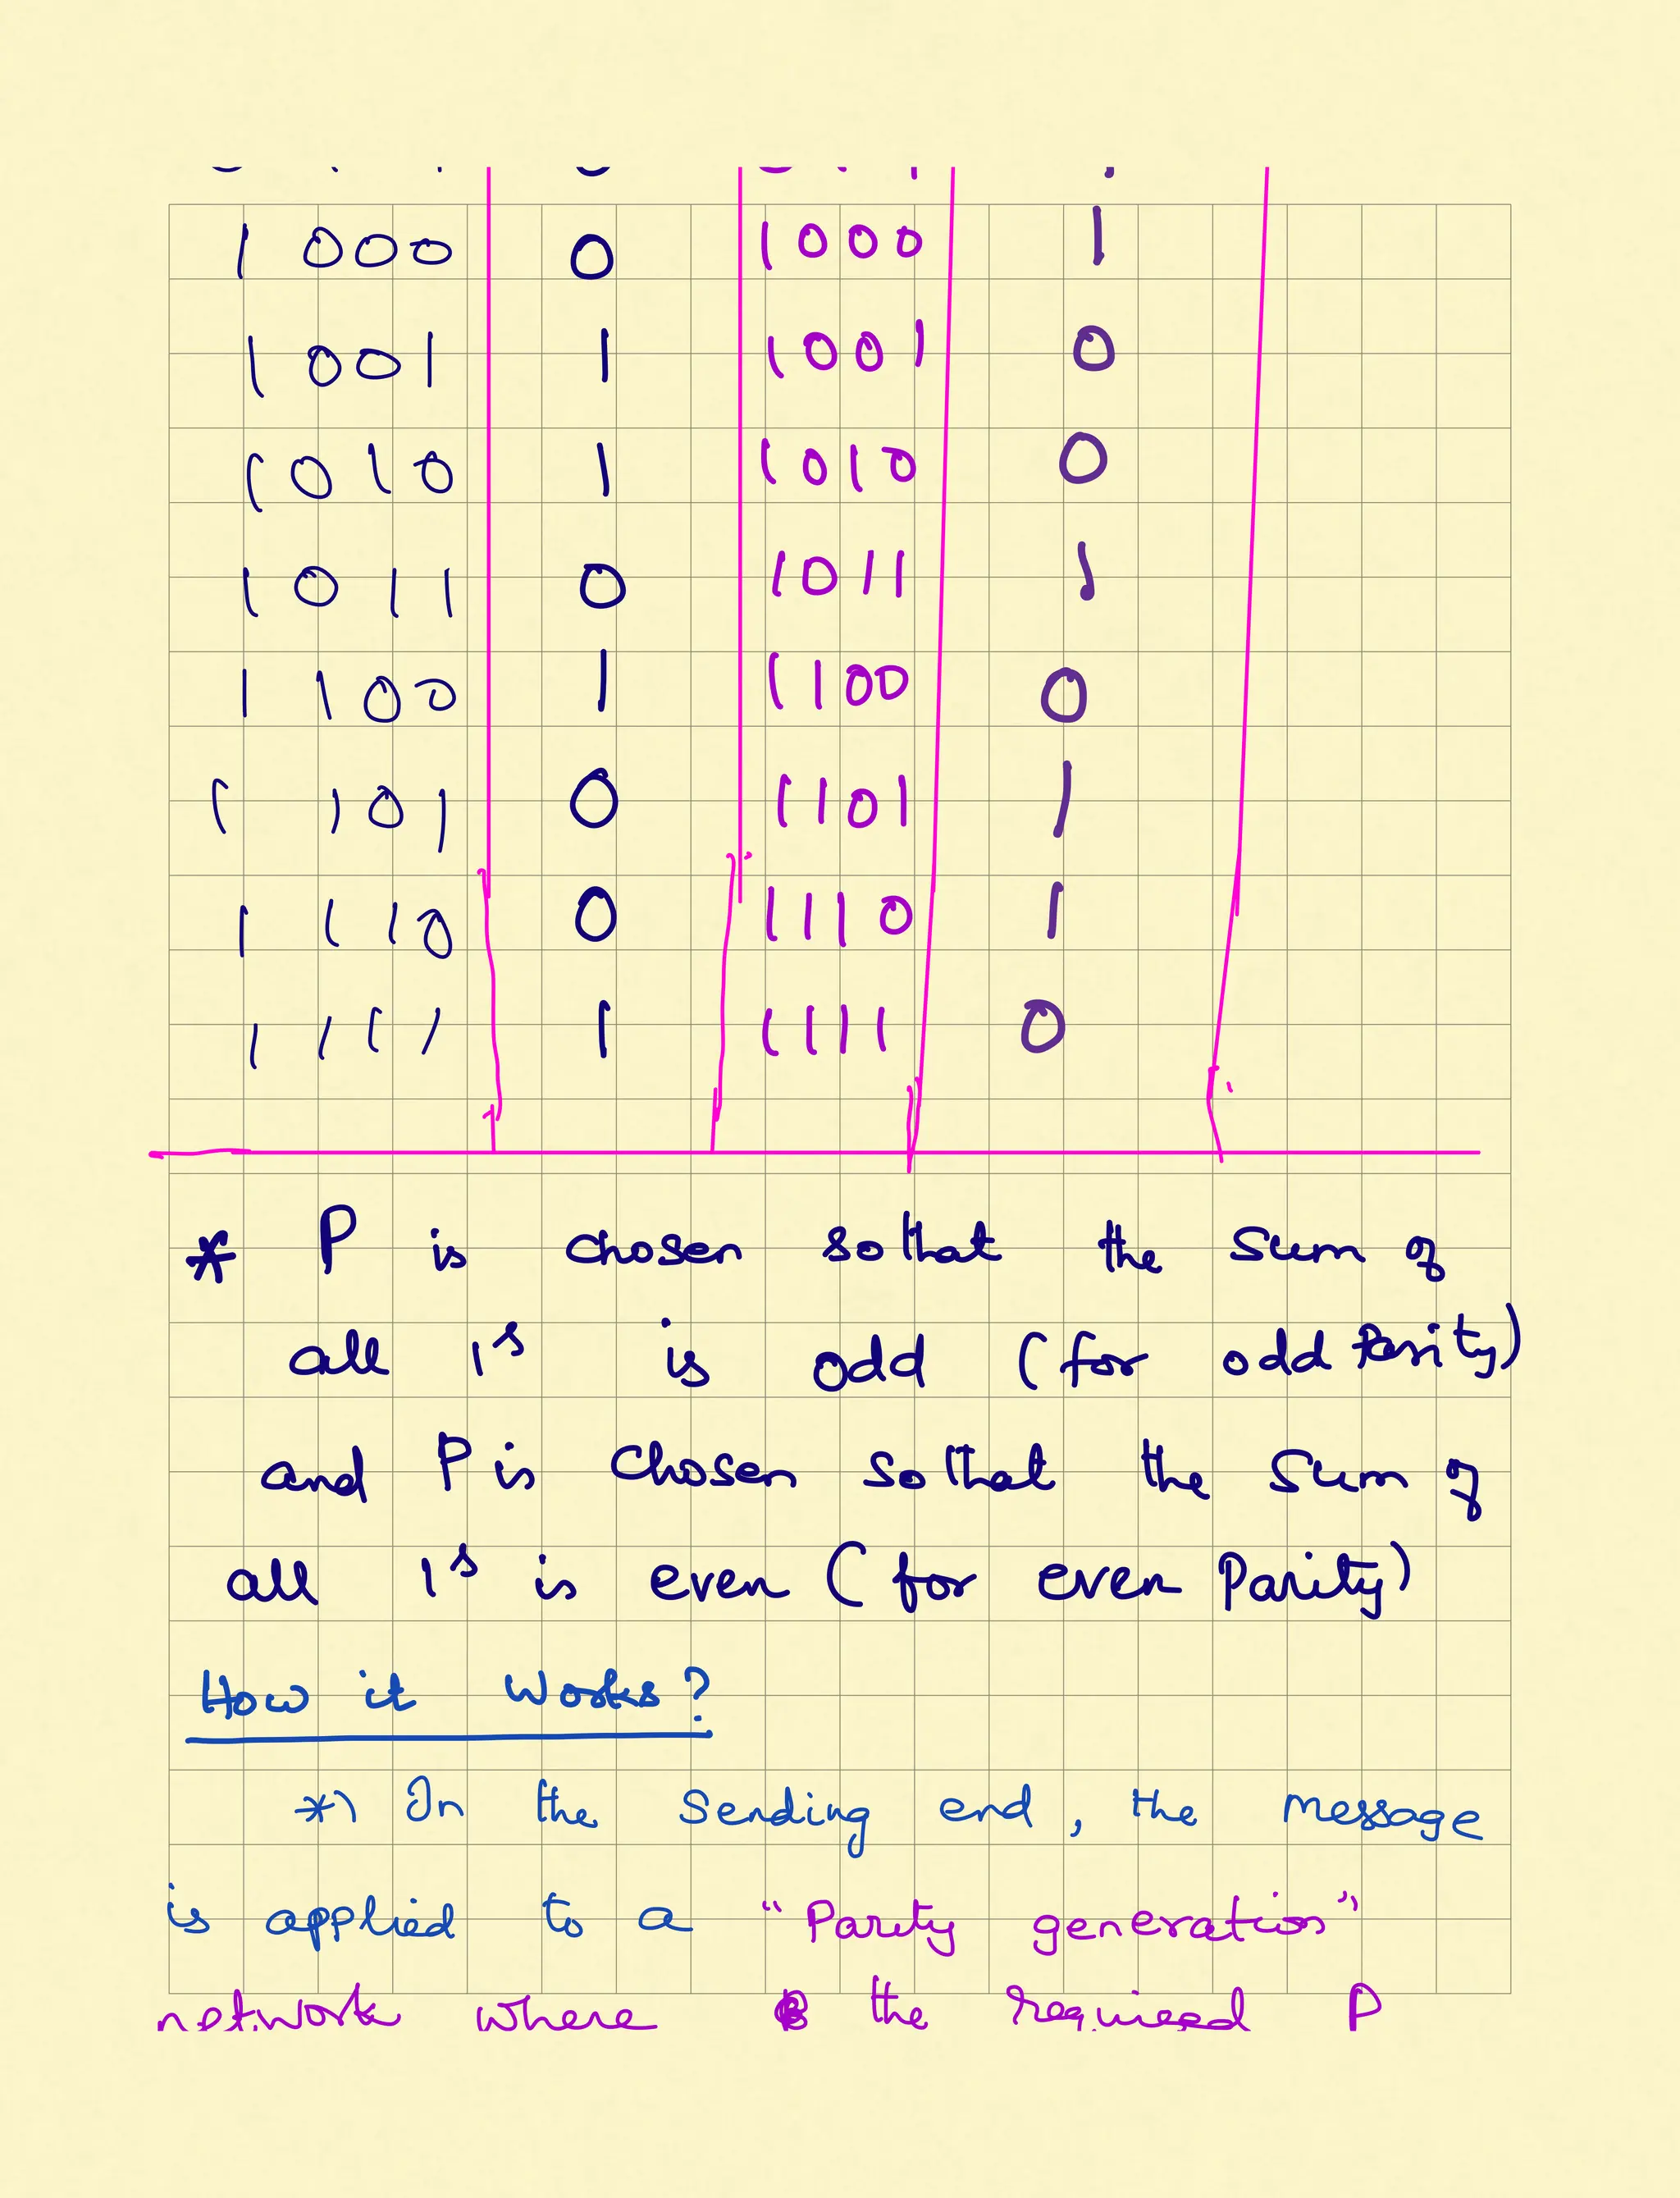 1 000 0 1000 1
1 001 1 1001 0
1010 1 1010 0
1011 0 1011 1
1 100 1 1100 0
1 101 0 1101 1
1 110 0 1110 1
1111 1 1111 0
* P is chosen sothat the sum of
all 1s is odd (for odd Parity)
and P is chosen sothat the sum of
all 1s is even (for even Parity)
How it Works?
*) In the Sending end, the message
is applied to a "Parity generation"
network where the required P